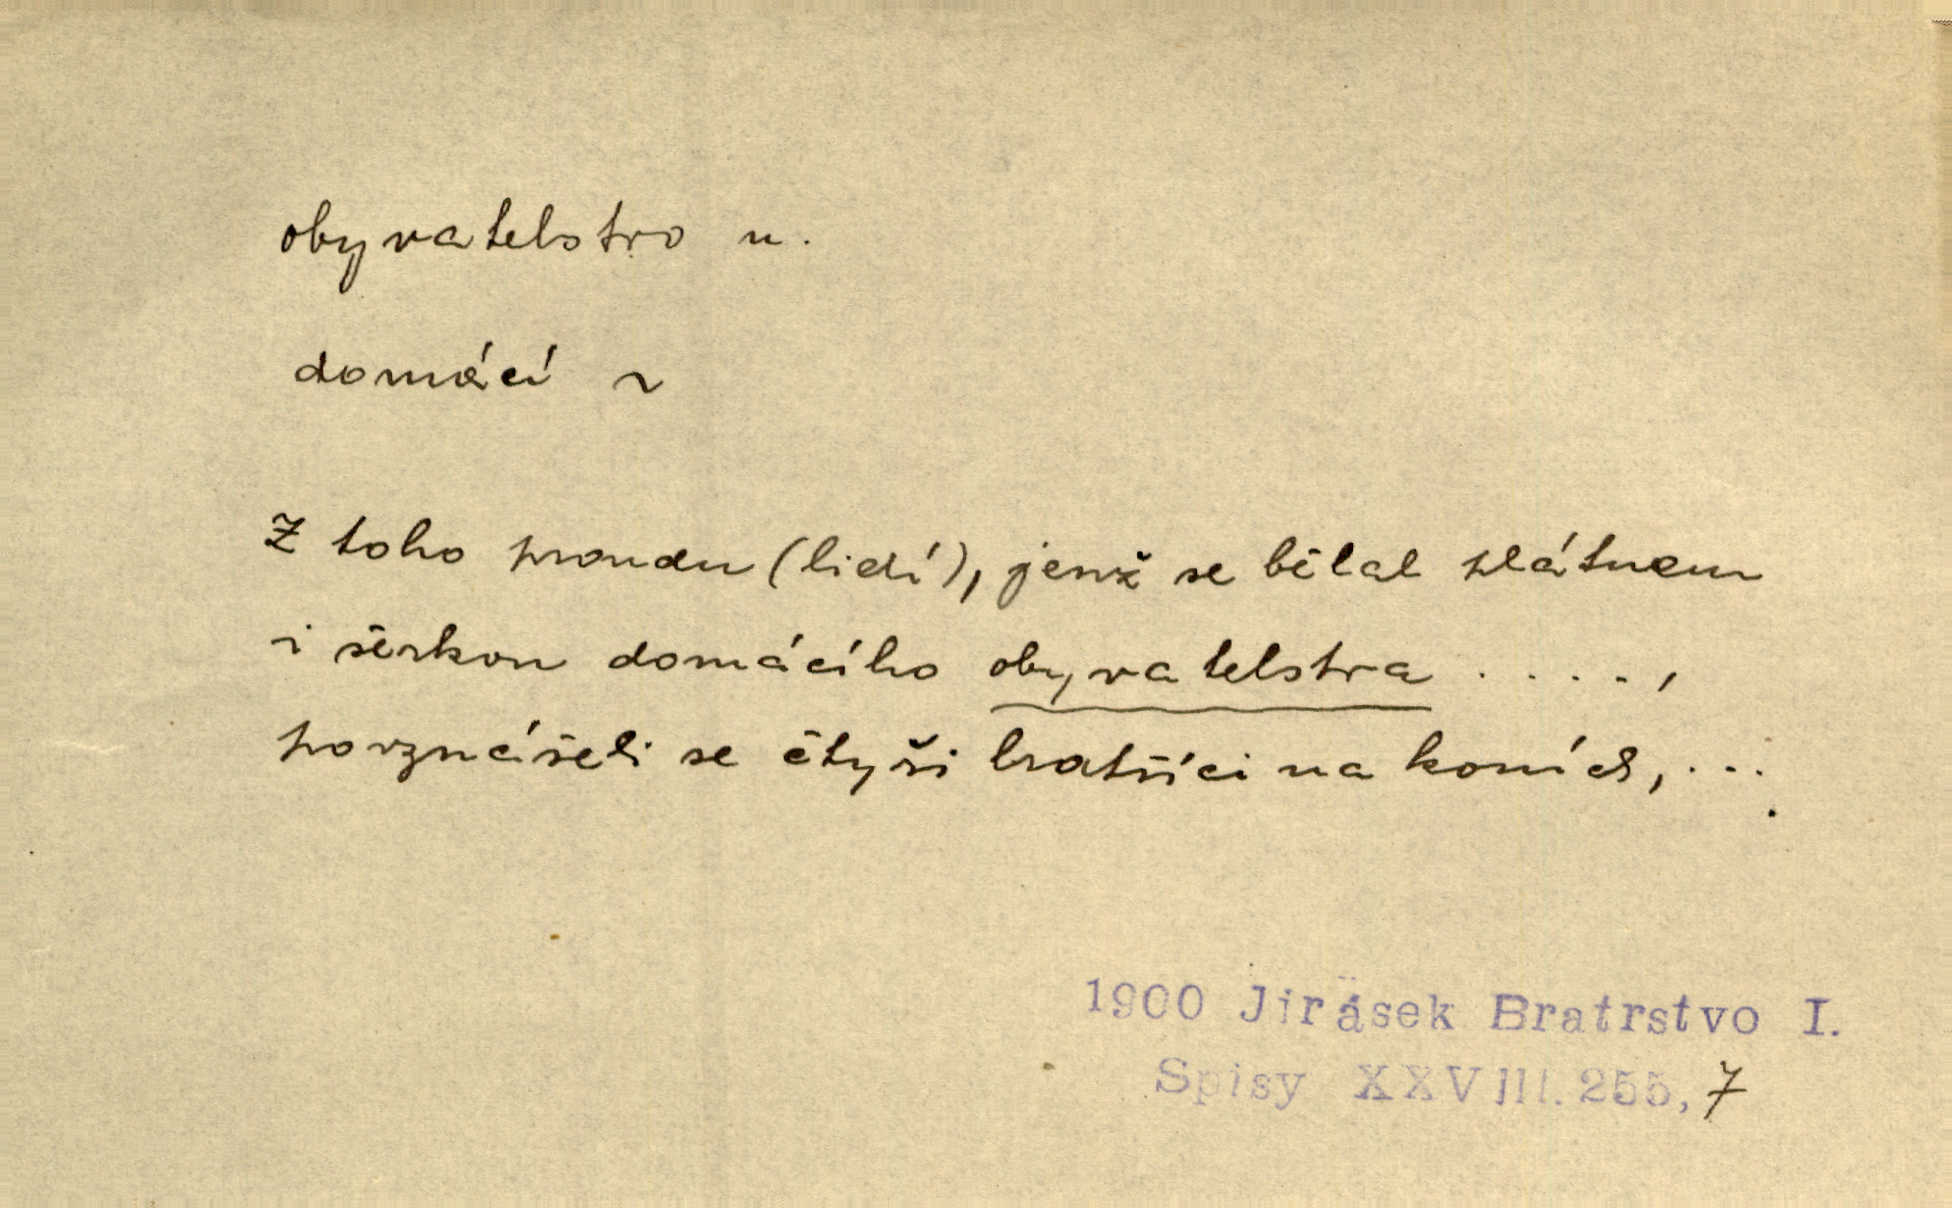 obyvatelstvo n.
domácí ~
Z toho proudu (lidí), jenž se bělal plátnem
i šerkou domácího obyvatelstva . . . . . ,
povznášeli se čtyři bratříci na koních, . . . .
1900 Jirásek Bratrstvo I.
Spisy XXVIII. 255, 7